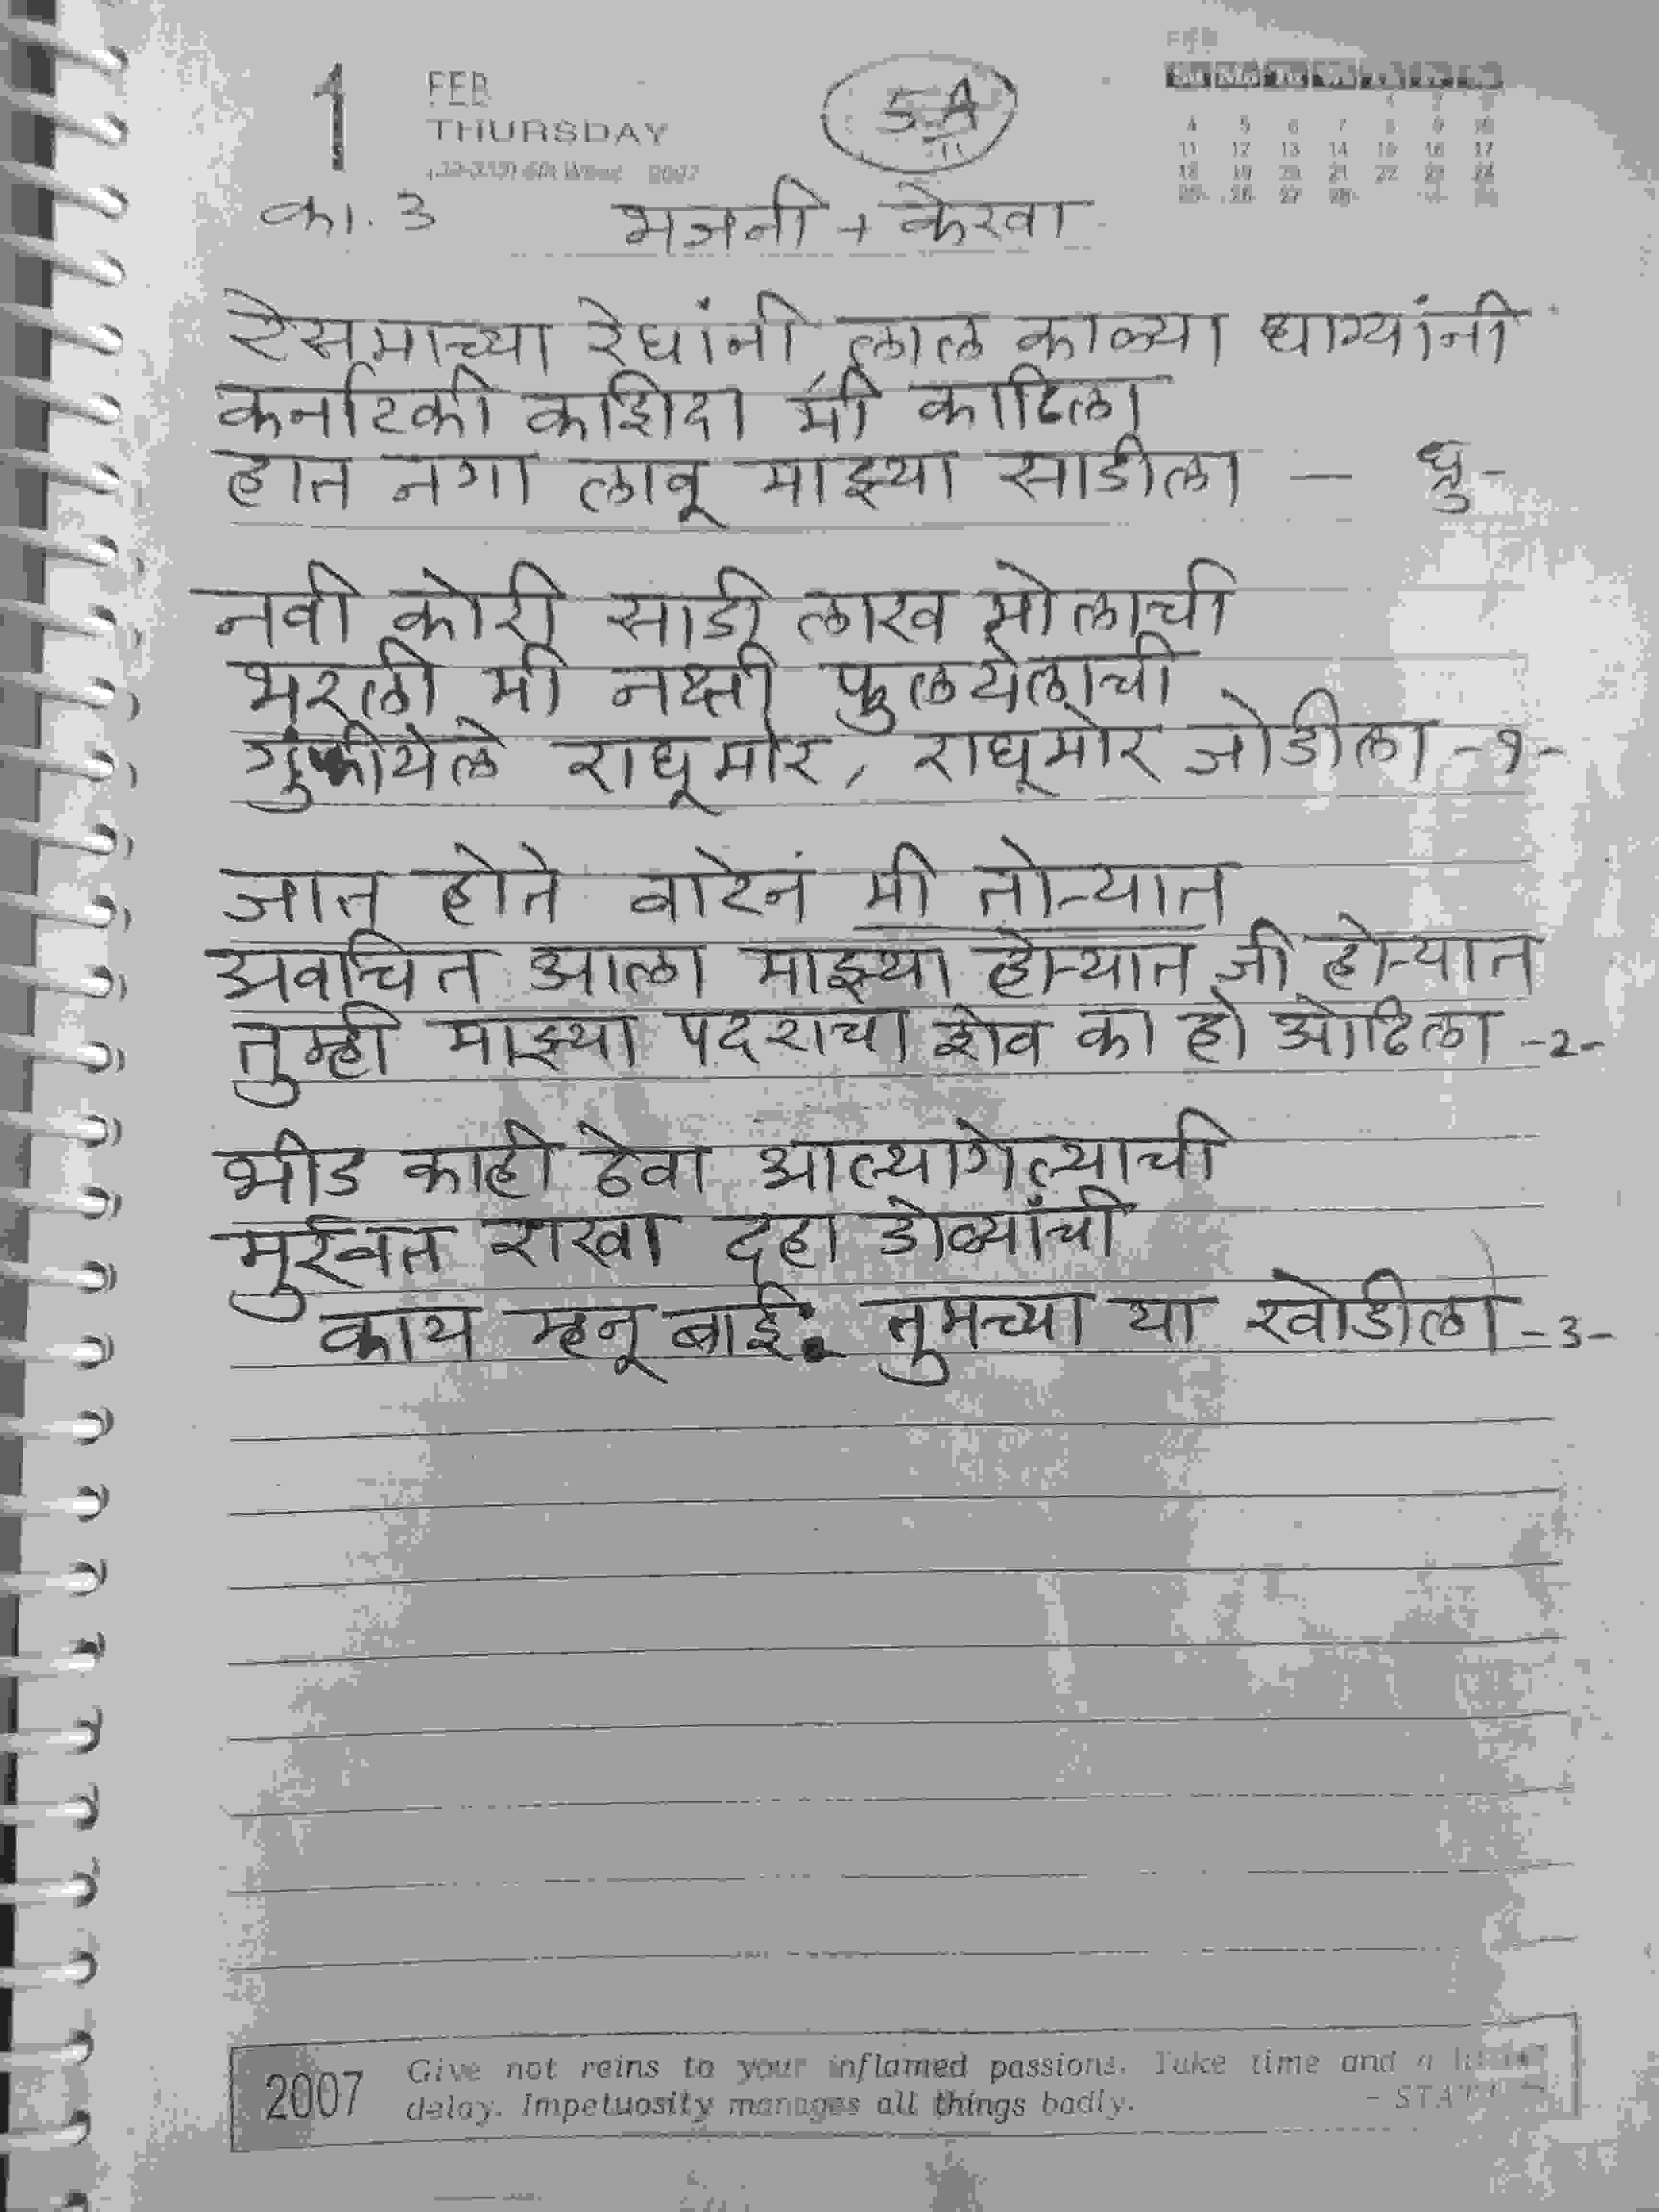 1 FEB
THURSDAY
5-A
FEB
4 5 6 7 8 9 10
11 12 13 14 15 16 17
18 19 20 21 22 23 24
25 26 27 28
का. 3 भजनी + केरवा
रेसमाच्या रेघांनी लाल काळ्या धाग्यांनी
कर्नाटकी कशिदा मी काढिला
हात नगा लावू माझ्या साडीला — ध्रु-
नवी कोरी साडी लाख मोलाची
भरली मी नक्षी फुलयेलाची
गुंफीयेले राघूमोर, राघूमोर जोडीला -१-
जात होते वाटेनं मी तोऱ्यात
अवचित आला माझ्या होऱ्यात जी होऱ्यात
तुम्ही माझ्या पदराचा शेव का हो ओढिला -2-
भीड काही ठेवा आल्यागेल्याची
मुर्रवत राखा दहा डोळ्यांची
काय म्हनू बाई तुमच्या या खोडीला -3-
2007 Give not reins to your inflamed passions. Take time and a
delay. Impetuosity manages all things badly.